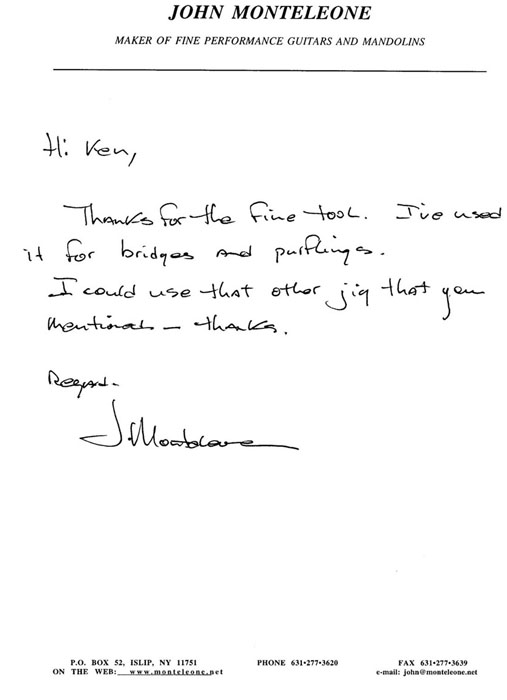 JOHN MONTELEONE
MAKER OF FINE PERFORMANCE GUITARS AND MANDOLINS
Hi Ken,
Thanks for the fine tool. I've used
it for bridges and purflings.
I could use that other jig that you
mentioned – thanks.
Regards
J Monteleone
P.O. BOX 52, ISLIP, NY 11751 PHONE 631•277•3620 FAX 631•277•3639
ON THE WEB: www.monteleone.net e-mail: john@monteleone.net